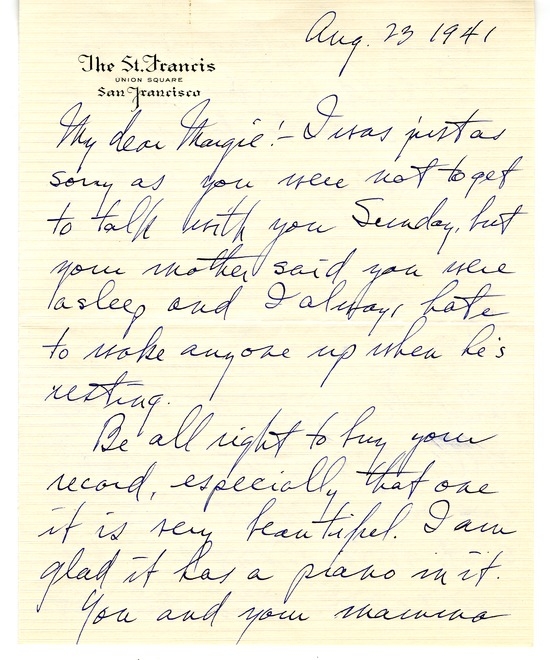 Aug. 23 1941
The St. Francis
UNION SQUARE
San Francisco
My dear Margie:- I was just as
sorry as you were not to get
to talk with you Sunday, but
your mother said you were
asleep and I always hate
to wake anyone up when he's
resting.
Be all right to buy your
record, especially that one
it is very beautiful. I am
glad it has a piano in it.
You and your mamma